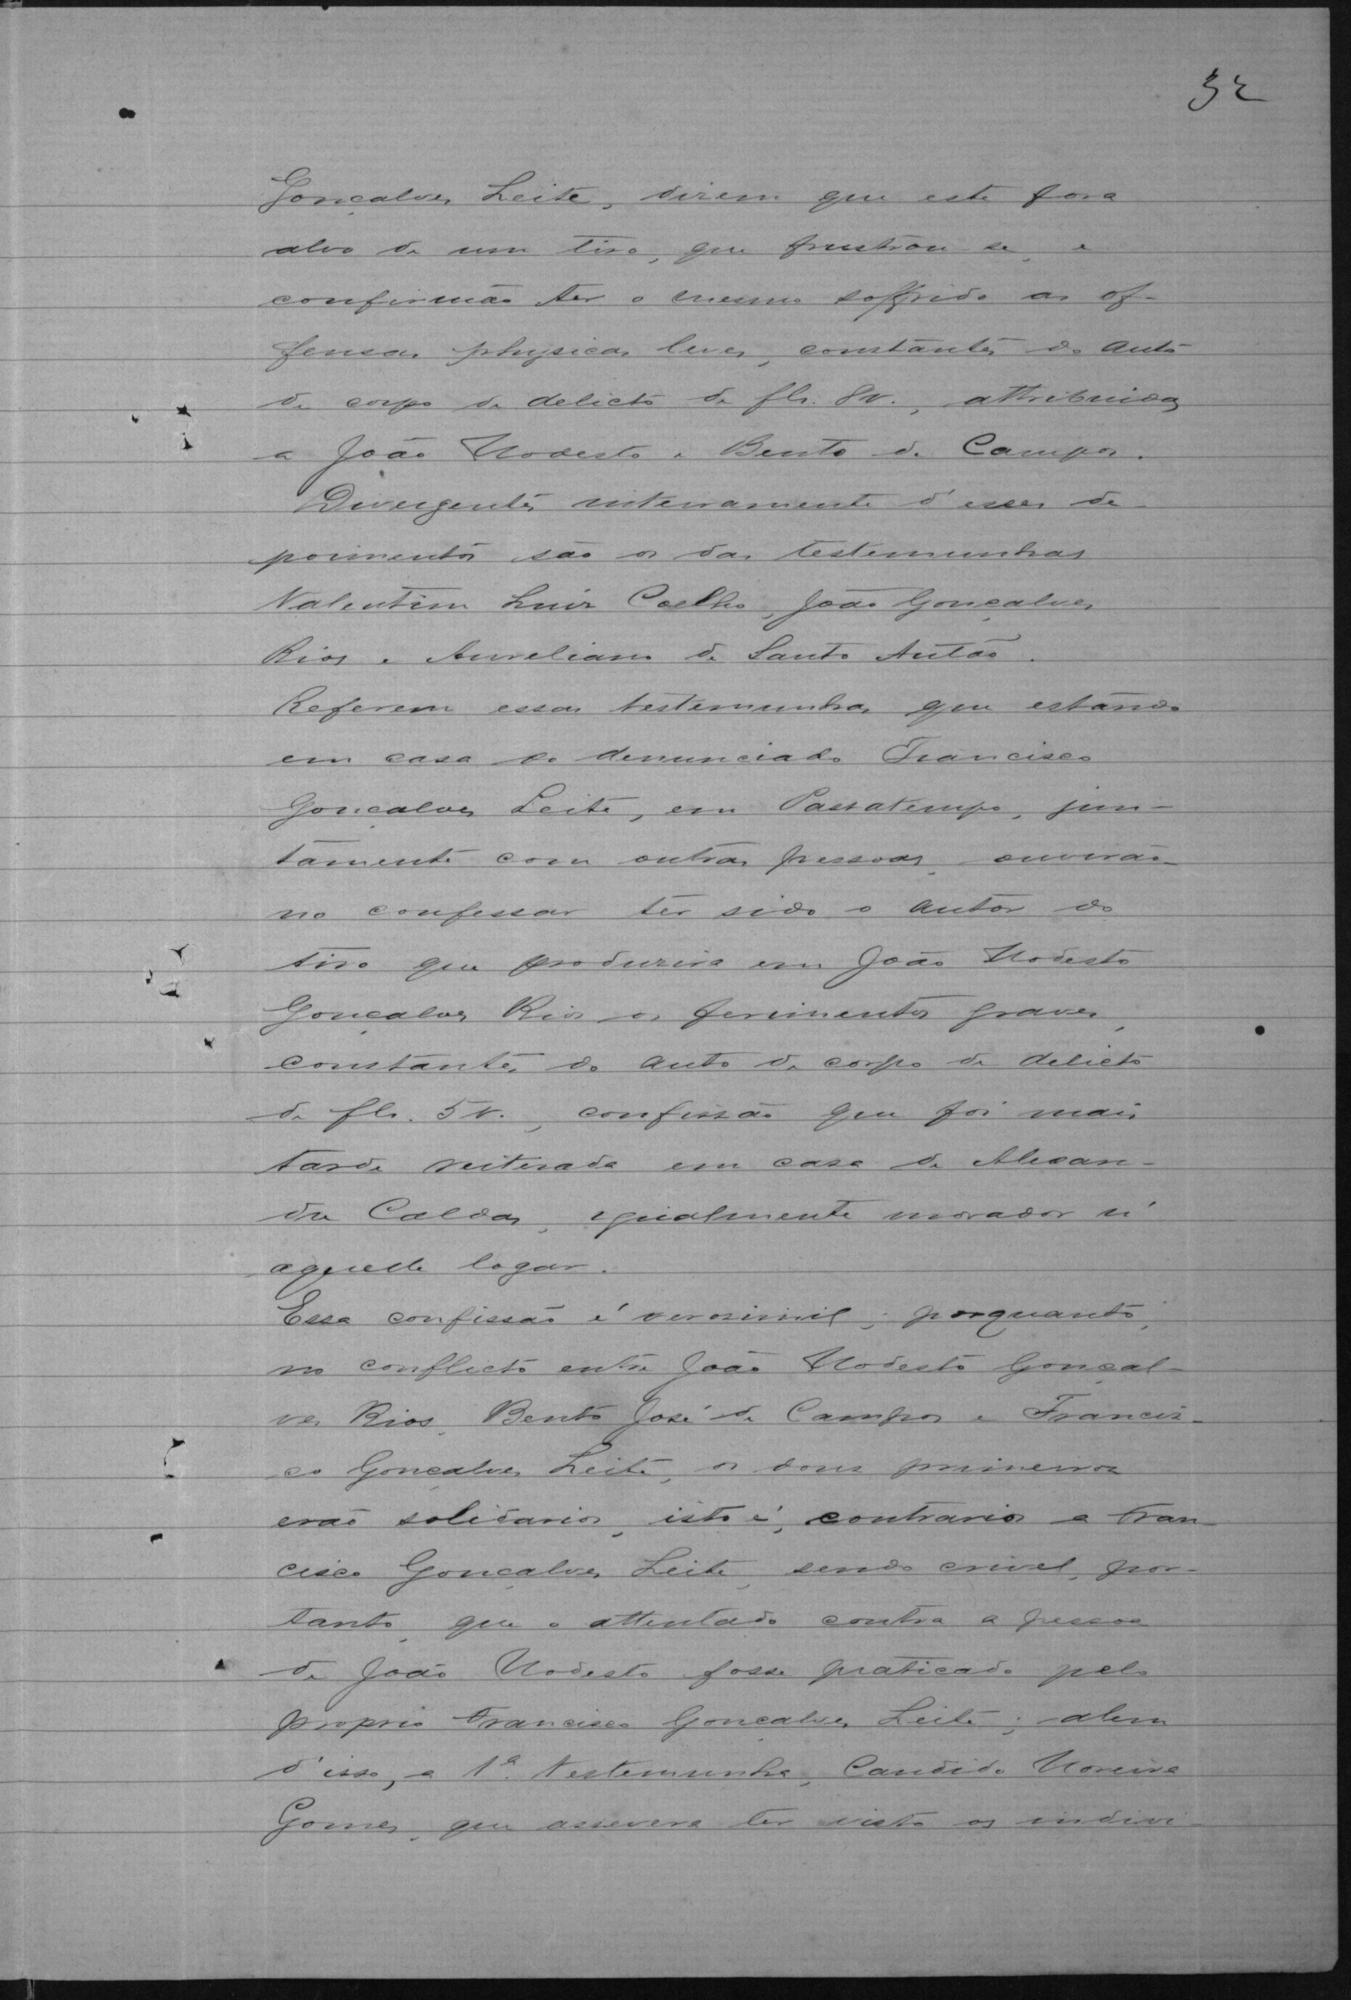 32
Gonçalves Leite, dizem que este fora
alvo de um tiro, que frustrou-se, e
confirmão ter o mesmo soffrido as of-
fensas physicas leves, constantes do auto
de corpo de delicto de fls. 8v., attribuidas
a João Modesto e Bento de Campos.
Divergentes inteiramente d'esses de-
poimentos são os das testemunhas
Valentim Luiz Coelho, João Gonçalves
Rios e Aureliano de Santo Antão.
Referem essas testemunhas que estando
em casa do denunciado Francisco
Gonçalves Leite, em Passatempo, jun-
tamente com outras pessoas, ouvirão-
no confessar ter sido o autor do
tiro que produzira em João Modesto
Gonçalves Rios os ferimentos graves,
constantes do auto de corpo de delicto
de fls. 5v., confissão que foi mais
tarde reiterada em casa de Alexan-
dre Caldas, igualmente morador n'
aquelle logar.
Essa confissão é verosimil; porquanto,
no conflicto entre João Modesto Gonçal-
ves Rios, Bento José de Campos e Francis-
co Gonçalves Leite, os dous primeiros
erão solidarios, isto é, contrarios a Fran-
cisco Gonçalves Leite, sendo crivel, por-
tanto, que o attentado contra a pessoa
de João Modesto fosse praticado pelo
proprio Francisco Gonçalves Leite; alem
d'isso, a 1ª testemunha, Candido Moreira
Gomes, que assevera ter visto os indivi-